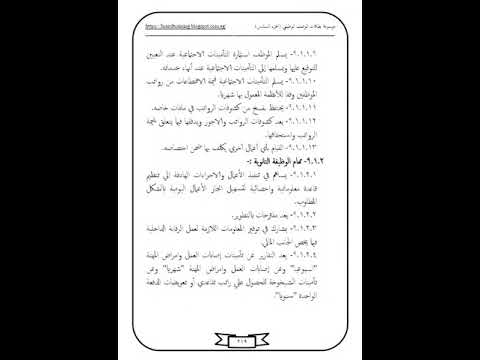 موسوعة بطاقات الوصف الوظيفي (الجزء السادس)
٩.١.١.٩- يسلم الموظف استمارة التأمينات الاجتماعية عند التعيين
للتوقيع عليها ويسلمها إلي التأمينات الاجتماعية عند أنهاء خدماته.
٩.١.١.١٠- يسلم التأمينات الاجتماعية قيمة الاقتطاعات من رواتب
الموظفين وفقا للأنظمة المعمول بها شهريا.
٩.١.١.١١- يحتفظ بنسخ من كشوفات الرواتب في ملفات خاصة.
٩.١.١.١٢- يعد كشوفات الرواتب والاجور ويدققها فيما يتعلق بقيمة
الرواتب واستحقاقها.
٩.١.١.١٣- القيام بأي أعمال أخري يكلف بها ضمن اختصاصه.
٩.١.٢- مهام الوظيفة الثانوية :-
٩.١.٢.١- يساهم في تنفيذ الأعمال والاجراءات الهادفة إلي تنظيم
قاعدة معلوماتية واحصائية لتسهيل انجاز الأعمال اليومية بالشكل
المطلوب.
٩.١.٢.٢- يعد مقترحات بالتطوير.
٩.١.٢.٣- يشارك في توفير المعلومات اللازمة لعمل الرقابة الداخلية
فيما يخص الجانب المالي.
٩.١.٢.٤- يعد التقارير عن تأمينات إصابات العمل وامراض المهنة
"اسبوعيا" وعن إصابات العمل وامراض المهنة "شهريا" وعن
تأمينات الشيخوخة للحصول علي راتب تقاعدي أو تعويضات الدفعة
الواحدة "سنويا".
٢١٩